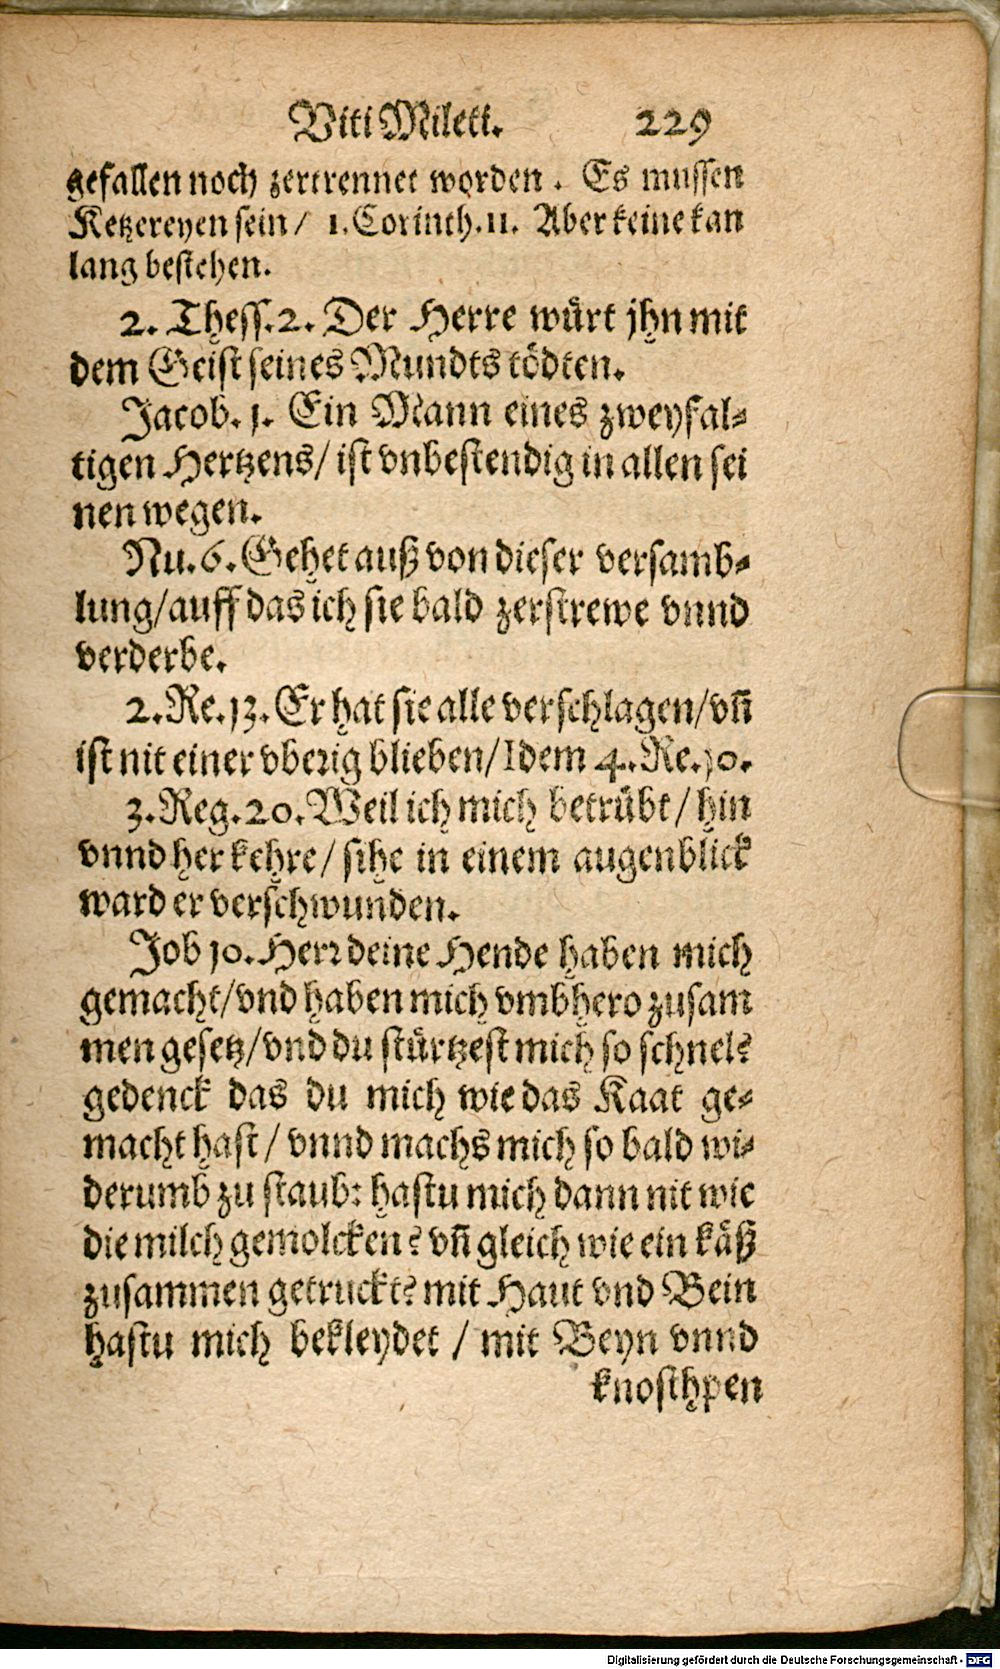 Viti Mileti. 229
gefallen noch zertrennet worden . Es mussen
Ketzereyen sein / 1. Corinth. 11. Aber keine kan
lang bestehen.
2. Thess. 2. Der Herre würt jhn mit
dem Geist seines Mundts tödten.
Jacob. 1. Ein Mann eines zweyfal-
tigen Hertzens / ist vnbestendig in allen sei
nen wegen.
Nu. 6. Gehet auß von dieser versamb-
lung / auff das ich sie bald zerstrewe vnnd
verderbe.
2. Re. 13. Er hat sie alle verschlagen / vñ
ist nit einer vberig blieben / Idem 4. Re. 10.
3. Reg. 20. Weil ich mich betrübt / hin
vnnd her kehre / sihe in einem augenblick
ward er verschwunden.
Job 10. Herr deine Hende haben mich
gemacht / vnd haben mich vmbhero zusam
men gesetz / vnd du stürtzest mich so schnel?
gedenck das du mich wie das Kaat ge-
macht hast / vnnd machs mich so bald wi-
derumb zu staub: hastu mich dann nit wie
die milch gemolcken? vñ gleich wie ein käß
zusammen getruckt? mit Haut vnd Bein
hastu mich bekleydet / mit Beyn vnnd
knosthpen
Digitalisierung gefördert durch die Deutsche Forschungsgemeinschaft - DFG